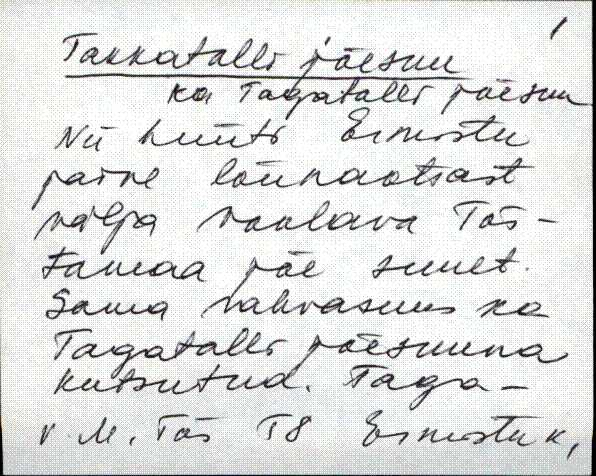 1
Takkatalli jõesuu
ka Tagatalli jõesuu
Nii hüüti Ermistu
järve lõunaotsast
välja voolava Tõs-
tamaa jõe suuet.
Sama rahvasuus ka
Tagatalli jõesuuna
kutsutud. Taga-
V M, Tõs T8 Ermistu k,